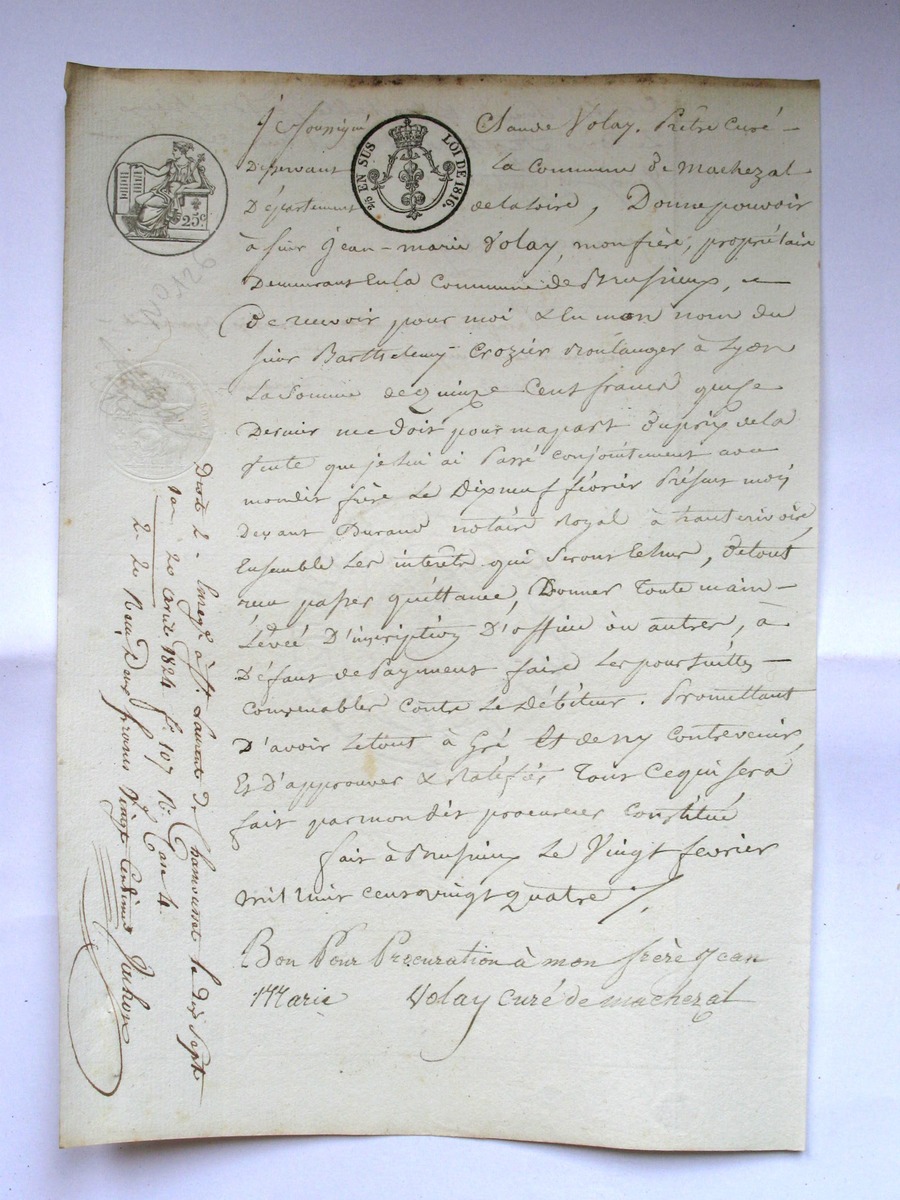 Je soussigné Claude Volay, Prêtre Curé
Desservant la Commune de Machezal
Département de la Loire, Donne pouvoir
à sieur Jean-marie Volay, mon frère, propriétaire
Demeurant En la Commune de Brusieux,
de recevoir pour moi & En mon nom du
sieur Barthelemy Crozier Boulanger à Lyon
La Somme de quinze Cent francs que ce
Dernier me doit pour ma part du prix de la
Vente que je lui ai Passé conjointement avec
mondit frère Le Dix neuf février Présent mois
Devant Durand notaire Royal à hauterivoire,
Ensemble Les interêts qui Seront Echus, de tout
reçu passer quittance, Donner Toute main-
Levée D'inscription D'office ou autres, à
Défaut de Payment faire Les poursuites
Convenables Contre Le Débiteur. Promettant
D'avoir Le tout à Gré Et de n'y Contrevenir,
Et D'approuver & Ratifier Tout Ce qui sera
fait par mon dit procureur Constitué
fait à Brusieux Le Vingt fevrier
mil huit cent vingt quatre
Bon Pour Procuration à mon frère Jean
Marie Volay curé de machezal
25c.
EN SUS LOI DE 1816.
N° 126
Enregé à St Laurent de Chamousset le dix sept
avril 1824 f° 107 R° Case 4
Reçu Deux francs Vingt Centimes
2 20